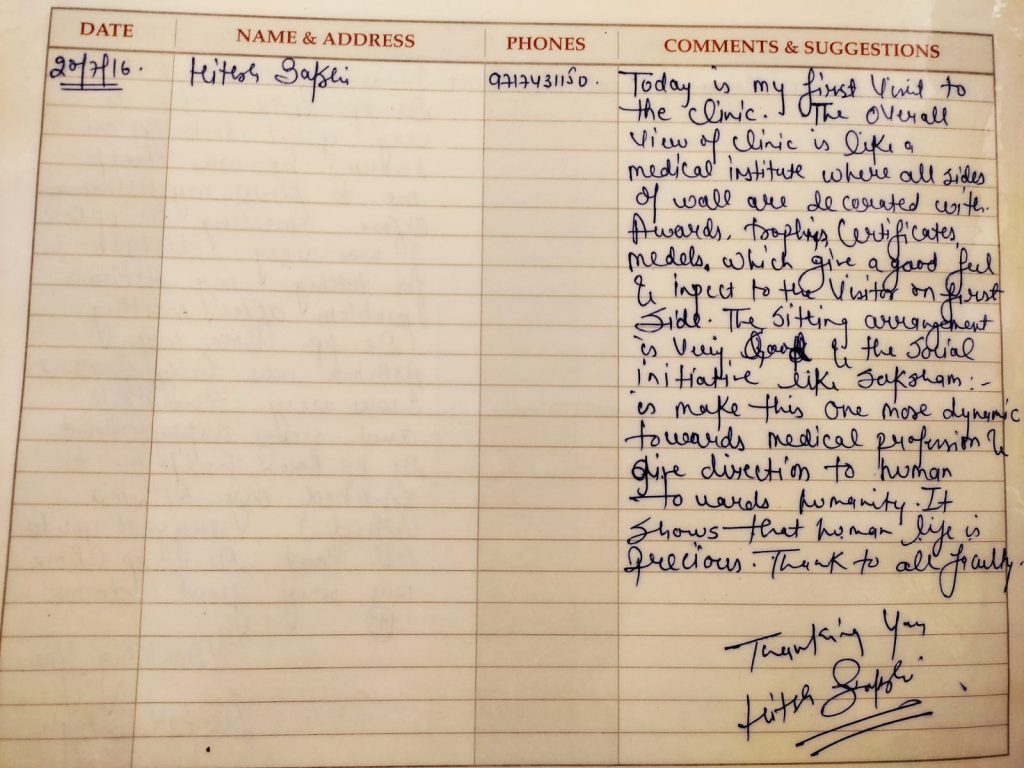 DATE NAME & ADDRESS PHONES COMMENTS & SUGGESTIONS
20/7/16. Hitesh 9717431150. Today is my first Visit to
the clinic. The overall
View of clinic is like a
medical institute where all sides
of wall are decorated with
Awards, trophies, Certificates,
medels. which give a good feel
& inpect to the Visitor on first
Side. The Sitting arrangement
is Very Good & the Social
initiative like Saksham:-
is make this one more dynamic
towards medical profession &
give direction to human
towards humanity. It
shows that human life is
precious. Thank to all faculty.
Thanking You
Hitesh